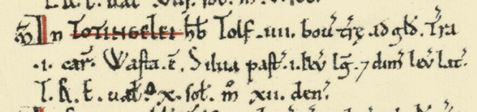 ꝳ In TOTINGELEI hƀ Tolf .iiii. bou' tr̃æ ad gld̃. Tr̃a
.i. car̃. Wasta .ē. Silua past' .i. leu' lg̃. ⁊ dim̃ leu' lat'.
T.R.E. ual' x. sol'. m̊ xii. den'.